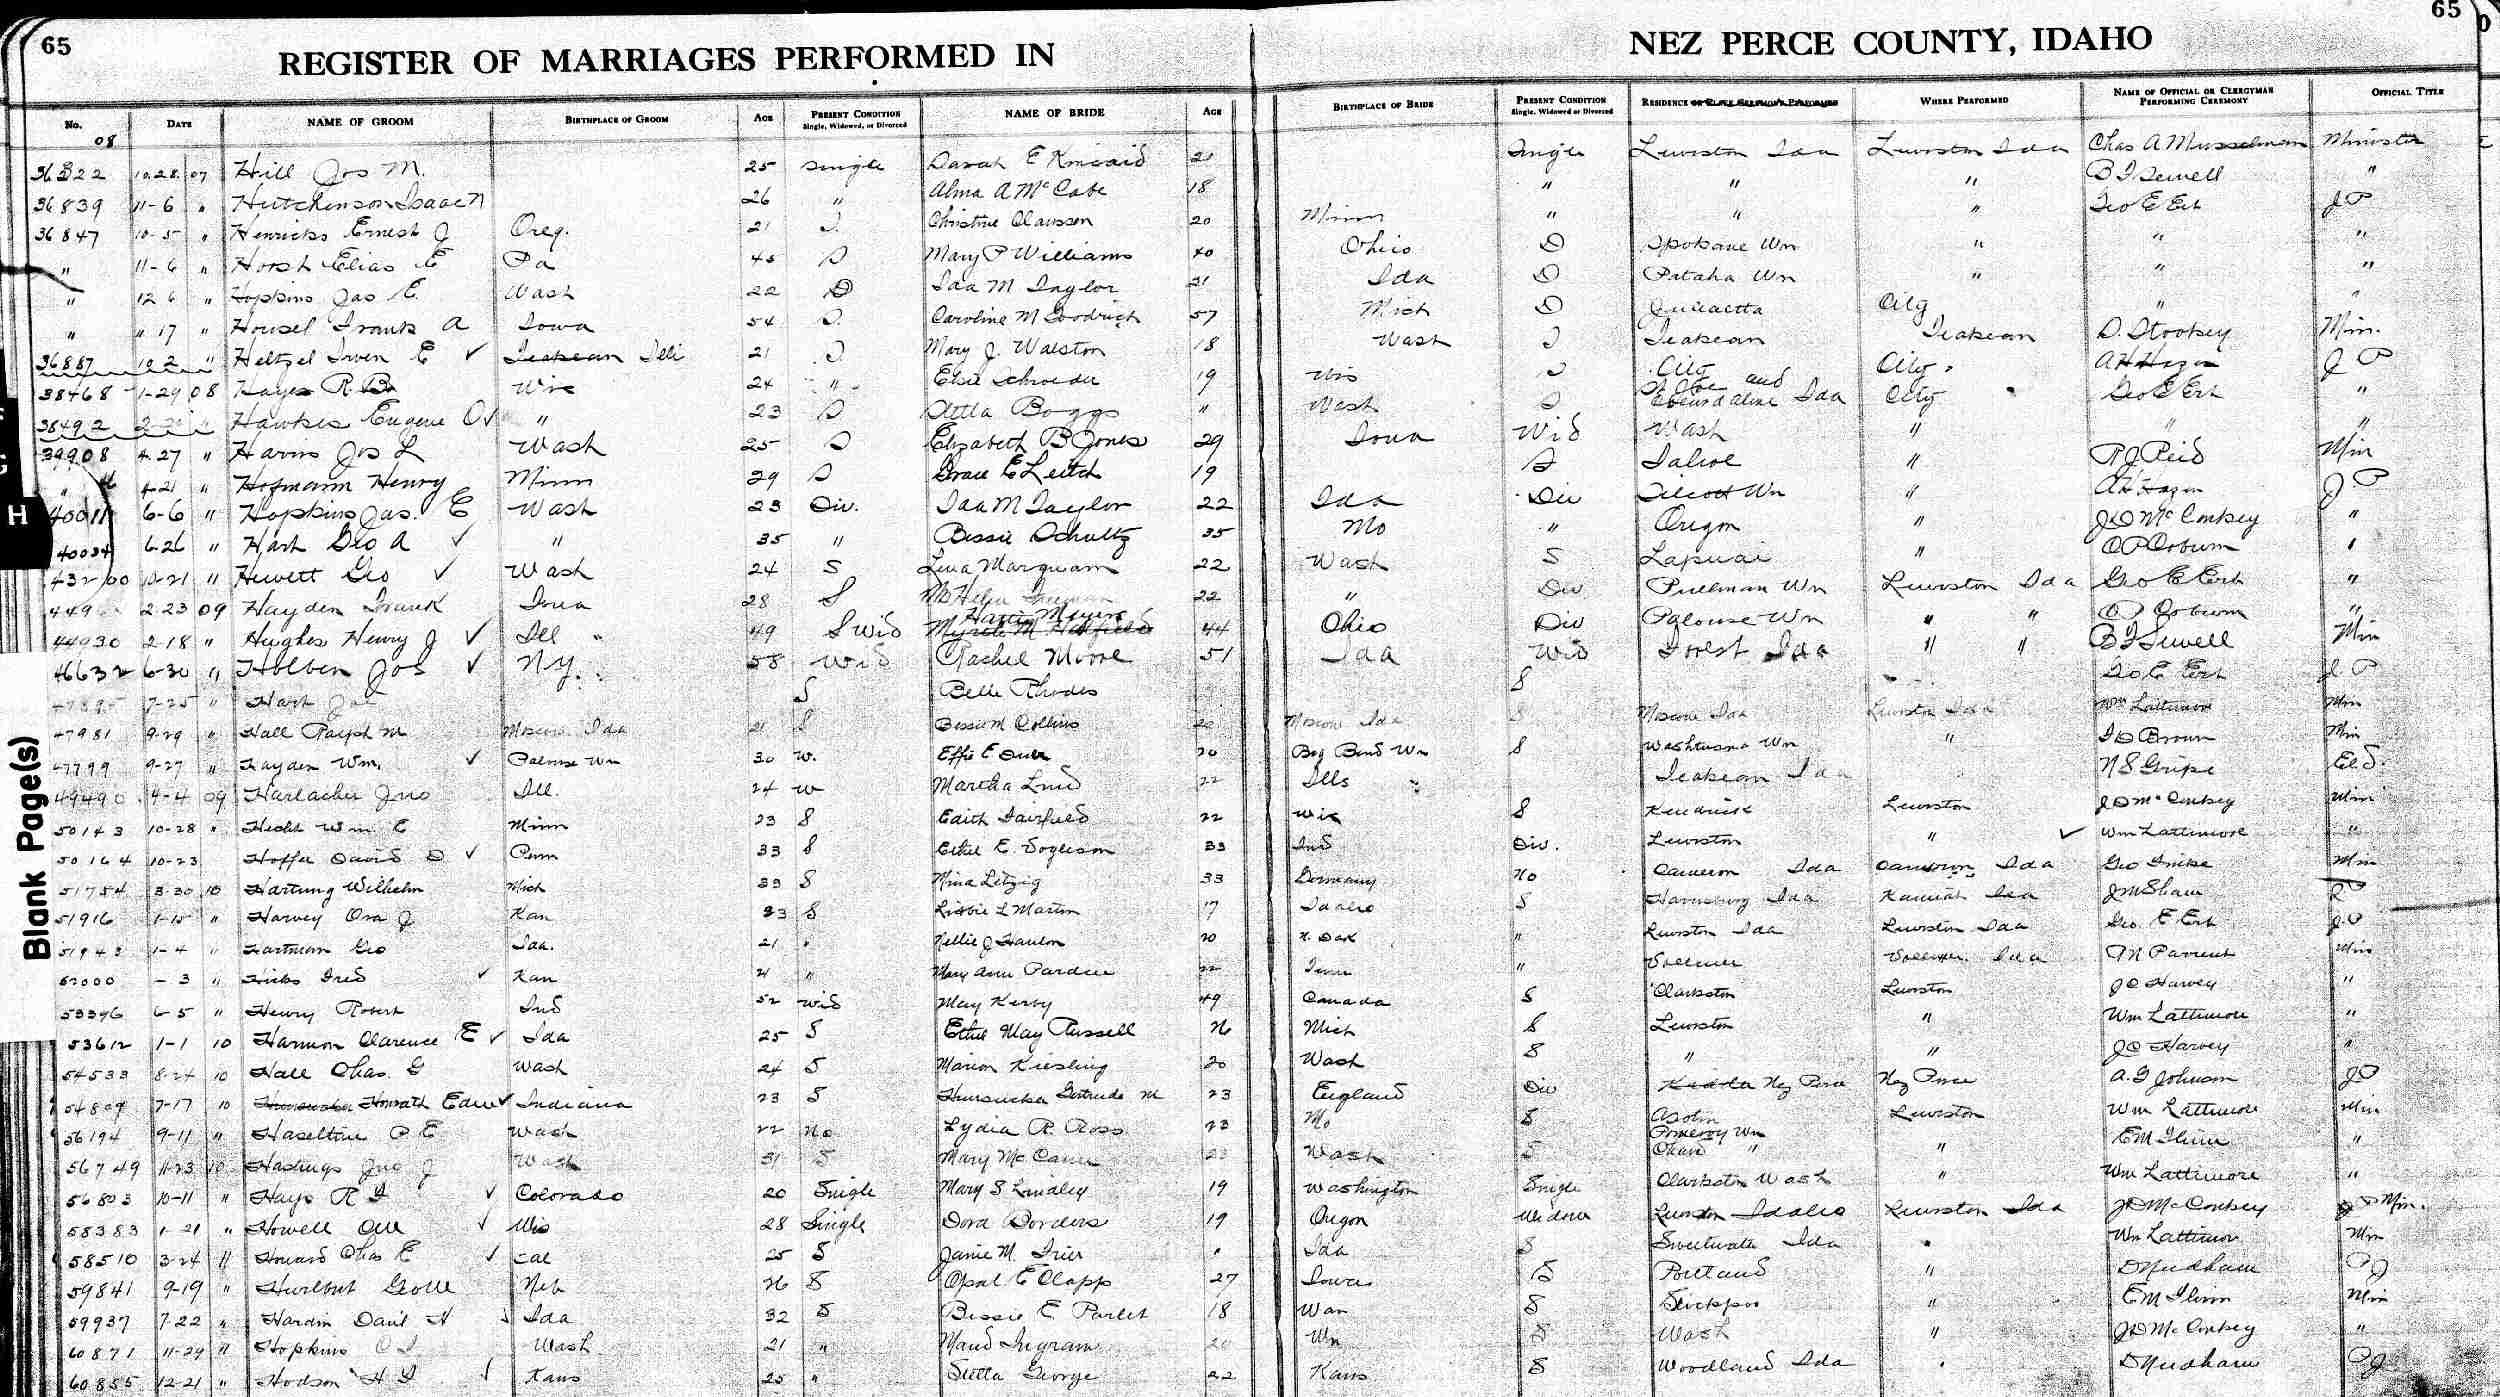 65
65
REGISTER OF MARRIAGES PERFORMED IN NEZ PERCE COUNTY, IDAHO
No. DATE NAME OF GROOM BIRTHPLACE OF GROOM AGE PRESENT CONDITION Single, Widowed, or Divorced NAME OF BRIDE AGE BIRTHPLACE OF BRIDE PRESENT CONDITION Single, Widowed or Divorced RESIDENCE WHERE PERFORMED NAME OF OFFICIAL OR CLERGYMAN PERFORMING CEREMONY OFFICIAL TITLE
08
10.28 07 Hill Jos M. 25 single Sarah E Kincaid 21 Single Lewiston Ida Lewiston Ida Chas A Musselman Minister
36839 11-6 " Hutchinson Isaac N 26 " Alma A McCabe 18 " " " B F Sewell "
36847 10-5 " Henricks Ernest J Oreg. 21 S. Christine Claussen 20 Minn " " " Geo E Erb J P
" 11-6 " Horsh Elias E Pa S Mary P Williams 40 Ohio D Spokane Wn " " "
" 12 6 " Hopkins Jas E. Wash 22 D Ida M Taylor 21 Ida D Pataha Wn " " "
" " 17 " Housel Frank A Iowa 54 S. Caroline M Goodrich 57 Mich D Juliaetta City " "
36887 10 2 " Heltzel Irven E ✓ Illi 21 S. Mary J. Walston 18 Wash S Teakean Teakean D. Stookey Min.
38468 1-29 08 Hayes R. B Wis 24 " Elsie Schroeder 19 Wis S City City A H Hazen J P
38492 " Hawkes Eugene O ✓ " 23 S Stella Boggs " Wash S and Ida City Geo E Erb "
39908 4.27 " Harris Jos L Wash 25 S Elizabeth B Jones 29 Iowa Wid Wash " " "
" 4-21 " Hofmann Henry Minn 29 S Grace E Leitch 19 S " R J Reid Min
40011 6-6 " Hopkins Jas. E Wash 23 Div. Ida M Taylor 22 Ida Div Silcott Wn " A H Hazen J P
40034 6-26 " Hart Geo A ✓ " 35 " Bessie Schultz 35 Mo " Oregon " J D McConkey "
43200 10-21 " Hewett Geo ✓ Wash 24 S Lena Marquam 22 Wash S Lapwai " O P Coburn "
2-23 09 Hayden Frank Iowa 28 S Helen 22 " Div Pullman Wn Lewiston Ida Geo E Erb "
44930 2-18 " Hughes Henry J ✓ Ill 49 S Wid 44 Ohio Div Palouse Wn " " O P Coburn "
46632 6-30 " Holben Jos ✓ N.Y. 58 Wid Rachel Moore 51 Ida Wid Forest Ida " " B F Sewell Min
7-25 " Hart S Belle Rhodes S Geo E Erb J. P
47981 9-29 " Hall Ralph M Moscow Ida 21 S Bessie M Collins 20 Moscow Ida S Moscow Ida Lewiston Ida Wm Lattimore Min
47799 9-27 " Hayden Wm. ✓ Palouse Wn 30 W. Effie E 20 Big Bend Wn S Washtucna Wn " Brown Min
49490 4-4 09 Harlacher Jno Ill. 24 W Martha Lind 22 Ills Teakean Ida N S Gripe Eld.
50143 10-28 " Hecht Wm E Minn 23 S Edith Fairfield 22 Wis S Kendrick Lewiston J D McConkey Min
50164 10-23 Hoffer David D ✓ Penn 33 S Ethel E. 33 Ind Div. Lewiston " ✓ Wm Lattimore "
51754 3-30 10 Hartung Wilhelm Mich 33 S Mina Letzig 33 Germany No Cameron Ida Cameron Ida Geo Min
51916 1-15 " Harvey Ora J Kan 23 S Libbie L Martin 17 Idaho S Ida Kamiah Ida J M Shaw
51943 1-4 " Hartman Geo Ida. 21 " Nellie J Hanlon 20 N. Dak " Lewiston Ida Lewiston Ida Geo. E Erb J.P
52000 - 3 " Hicks Fred ✓ Kan 21 " Mary Ann Pardee 22 " Vollmer Vollmer Ida Min
53396 6-5 " Henry Robert Ind 52 Wid May Kerby 49 Canada S Clarkston Lewiston J C Harvey "
53612 1-1 10 Harmon Clarence E ✓ Ida 25 S Ethel May Russell 26 Mich S Lewiston " Wm Lattimore "
54533 8-24 10 Hall Chas. G Wash 24 S Marion Kiesling 20 Wash S " " J C Harvey "
54809 7-17 10 Horrath Edw ✓ Indiana 23 S Hunsucker Gertrude M 23 England Div Nez Perce Nez Perce A. G Johnson J P
56194 9-11 " Haseltine P E Wash 22 No Lydia R. Ross 23 Mo S Asotin Lewiston Wm Lattimore Min
56749 11-23 10 Hastings Jno J Wash 31 S Mary 23 Wash S Pomeroy Wn " E M Flinn "
56803 10-11 " Hays R I ✓ Colorado 20 Single Mary S Lindley 19 Washington Single Clarkston Wash " Wm Lattimore "
58383 1-21 " Howell Orr ✓ Wis 28 Single Dora Borders 19 Oregon Widow Lewiston Idaho Lewiston Ida J D McConkey Min.
58510 3-24 " Howard Chas E ✓ Cal 25 S Janie M. " Ida S Sweetwater Ida " Wm Lattimore Min
59841 9-19 " Hurlbut Neb 26 S Opal E Clapp 27 Iowa S Portland " D Needham P J
59937 7-22 " Hardin David H ✓ Ida 32 S Bessie E Parlet 18 Wan S " E M Flinn Min
60871 11-29 " Hopkins Wash 21 " Maud Ingram 20 Wn S Wash " J D McConkey "
60855 12-21 " Hodson H I ✓ Kans 25 " Stella George 22 Kans S Woodland Ida " D Needham P J
H
Blank Page(s)